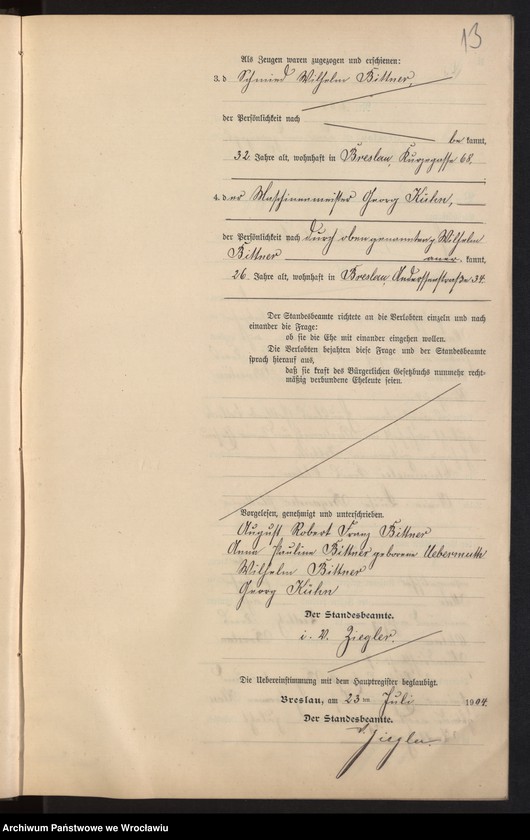 13
Als Zeugen waren zugezogen und erschienen:
3. d Schmied Wilhelm Bittner,
der Persönlichkeit nach
be kannt,
32 Jahre alt, wohnhaft in Breslau, Kurzegasse 68.
4. d er Maschinenmeister Georg Kühn,
der Persönlichkeit nach durch obengenannten Wilhelm
Bittner aner kannt,
26 Jahre alt, wohnhaft in Breslau, Anderssenstraße 34.
Der Standesbeamte richtete an die Verlobten einzeln und nach
einander die Frage:
ob sie die Ehe mit einander eingehen wollen.
Die Verlobten bejahten diese Frage und der Standesbeamte
sprach hierauf aus,
daß sie kraft des Bürgerlichen Gesetzbuchs nunmehr recht-
mäßig verbundene Eheleute seien.
Vorgelesen, genehmigt und unterschrieben.
August Robert Franz Bittner
Anna Pauline Bittner geborene Uebermuth
Wilhelm Bittner
Georg Kühn
Der Standesbeamte.
i. V. Ziegler.
Die Uebereinstimmung mit dem Hauptregister beglaubigt.
Breslau, am 23 ten Juli 1904.
Der Standesbeamte.
Ziegler.
Archiwum Państwowe we Wrocławiu